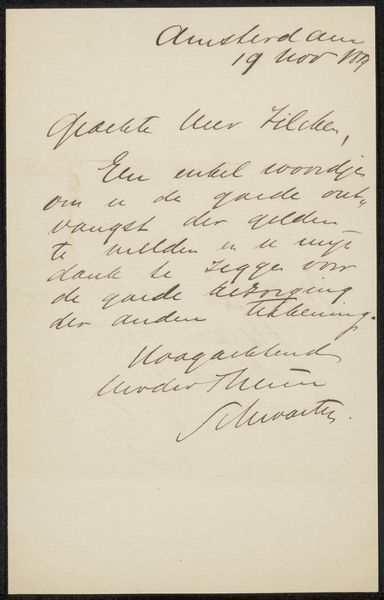 Amsterdam
19 Nov 1889
Geachte Heer Zilcken,
Een enkel woordje
om u de goede ont„
vangst der gelden
te melden en u mijn
dank te zeggen voor
de goede bezorging
der andere teekening.
Hoogachtend
Schwartze.